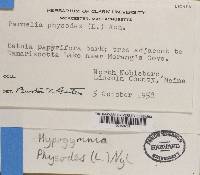 LICHEN
HERBARIUM OF CLARK UNIVERSITY
WORCESTER, MASSACHUSETTS
Parmelia physodes (L.) Ach.
Betula papyrifera bark; tree adjacent to
Damariscotta Lake near Morang's Cove.
North Nobleboro,
Lincoln County, Maine
COLL.
DET.
5 October 1958
Hypogymnia
Physodes (L.) Nyl.
HARVARD